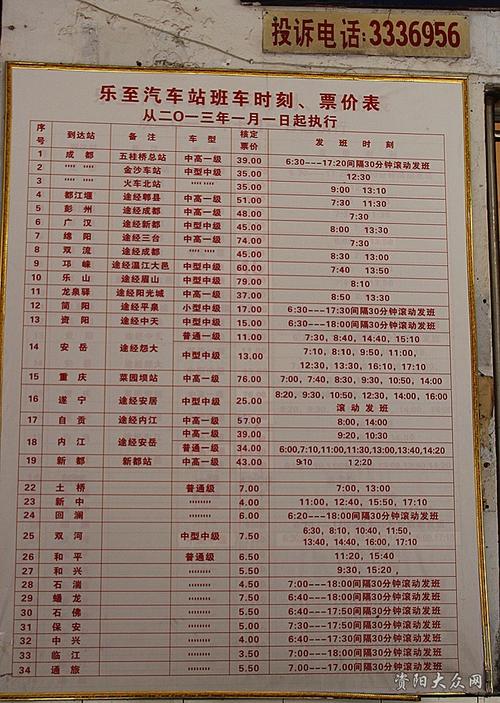 投诉电话:3336956
乐至汽车站班车时刻、票价表
从二〇一三年一月一日起执行
序号 到达站 备注 车型 核定票价 发班时刻
1 成都 五桂桥总站 中高一级 39.00 6:30---17:20间隔30分钟滚动发班
2 〃〃 〃〃 金沙车站 中型中级 35.00 12:30
3 〃〃 〃〃 火车北站 〃〃〃 35.00 9:00 13:10
4 都江堰 途经郫县 中高一级 51.00 7:30 11:30
5 彭州 途经成都 中高一级 48.00 7:30
6 广汉 途经新都 中型中级 45.00 8:00 13:30
7 绵阳 途经三台 中高一级 74.00 7:30
8 双流 途经成都 〃〃〃 45.00 8:30 13:00
9 邛崃 途经温江大邑 中型中级 60.00 7:40 13:50
10 乐山 途经眉山 中型中级 79.00 8:10
11 龙泉驿 途经阳光城 中高一级 37.00 8:50 13:30
12 简阳 途经平泉 小型中级 17.00 6:30---17:30间隔30分钟滚动发班
13 资阳 途经中天 中型中级 15.00 6:30---18:00间隔30分钟滚动发班
14 安岳 途经恕大 普通一级 11.00 7:30, 8:40, 14:40, 15:10
中型中级 13.00 7:10, 8:10, 9:50, 11:00,
12:30, 13:30, 16:10, 17:10
15 重庆 菜园坝站 中高一级 76.00 7:00, 7:40, 8:30, 9:30, 10:50, 14:00
16 遂宁 途经安居 中型中级 25.00 8:20, 9:30, 10:50, 12:30, 14:00, 16:00
滚动发班
17 自贡 途经内江 中高一级 57.00 8:00, 14:00
18 内江 途经安岳 中高一级 39.00 9:20, 10:30
普通一级 34.00 6:00,7:10,11:00,11:30,13:00,13:40,14:20
19 新都 新都站 中高一级 43.00 9:10 12:20
22 土桥 普通级 7.00 7:00, 13:00
23 新中 〃〃〃 4.00 11:00, 12:40, 15:50, 17:10
24 回澜 〃〃〃 6.00 6:20---18:00间隔30分钟滚动发班
25 双河 中型中级 7.50 6:30, 8:10, 10:40, 11:50,
13:40, 14:40, 16:00, 17:10
26 和平 普通级 6.50 11:20, 15:40
27 和兴 〃〃〃 5.50 9:30, 15:20 ,
28 石湍 〃〃〃 4.50 7:00---18:00间隔30分钟滚动发班
29 蟠龙 〃〃〃 7.50 6:40---18:00间隔30分钟滚动发班
30 石佛 〃〃〃 5.50 6:40---17:50间隔30分钟滚动发班
31 保安 〃〃〃 5.00 6:40---17:50间隔30分钟滚动发班
32 中兴 〃〃〃 4.00 6:40---17:30间隔30分钟滚动发班
33 临江 〃〃〃 3.50 7:00---18:00间隔30分钟滚动发班
34 通旅 〃〃〃 5.50 7:00---17.00间隔30分钟滚动发班
资阳大众网